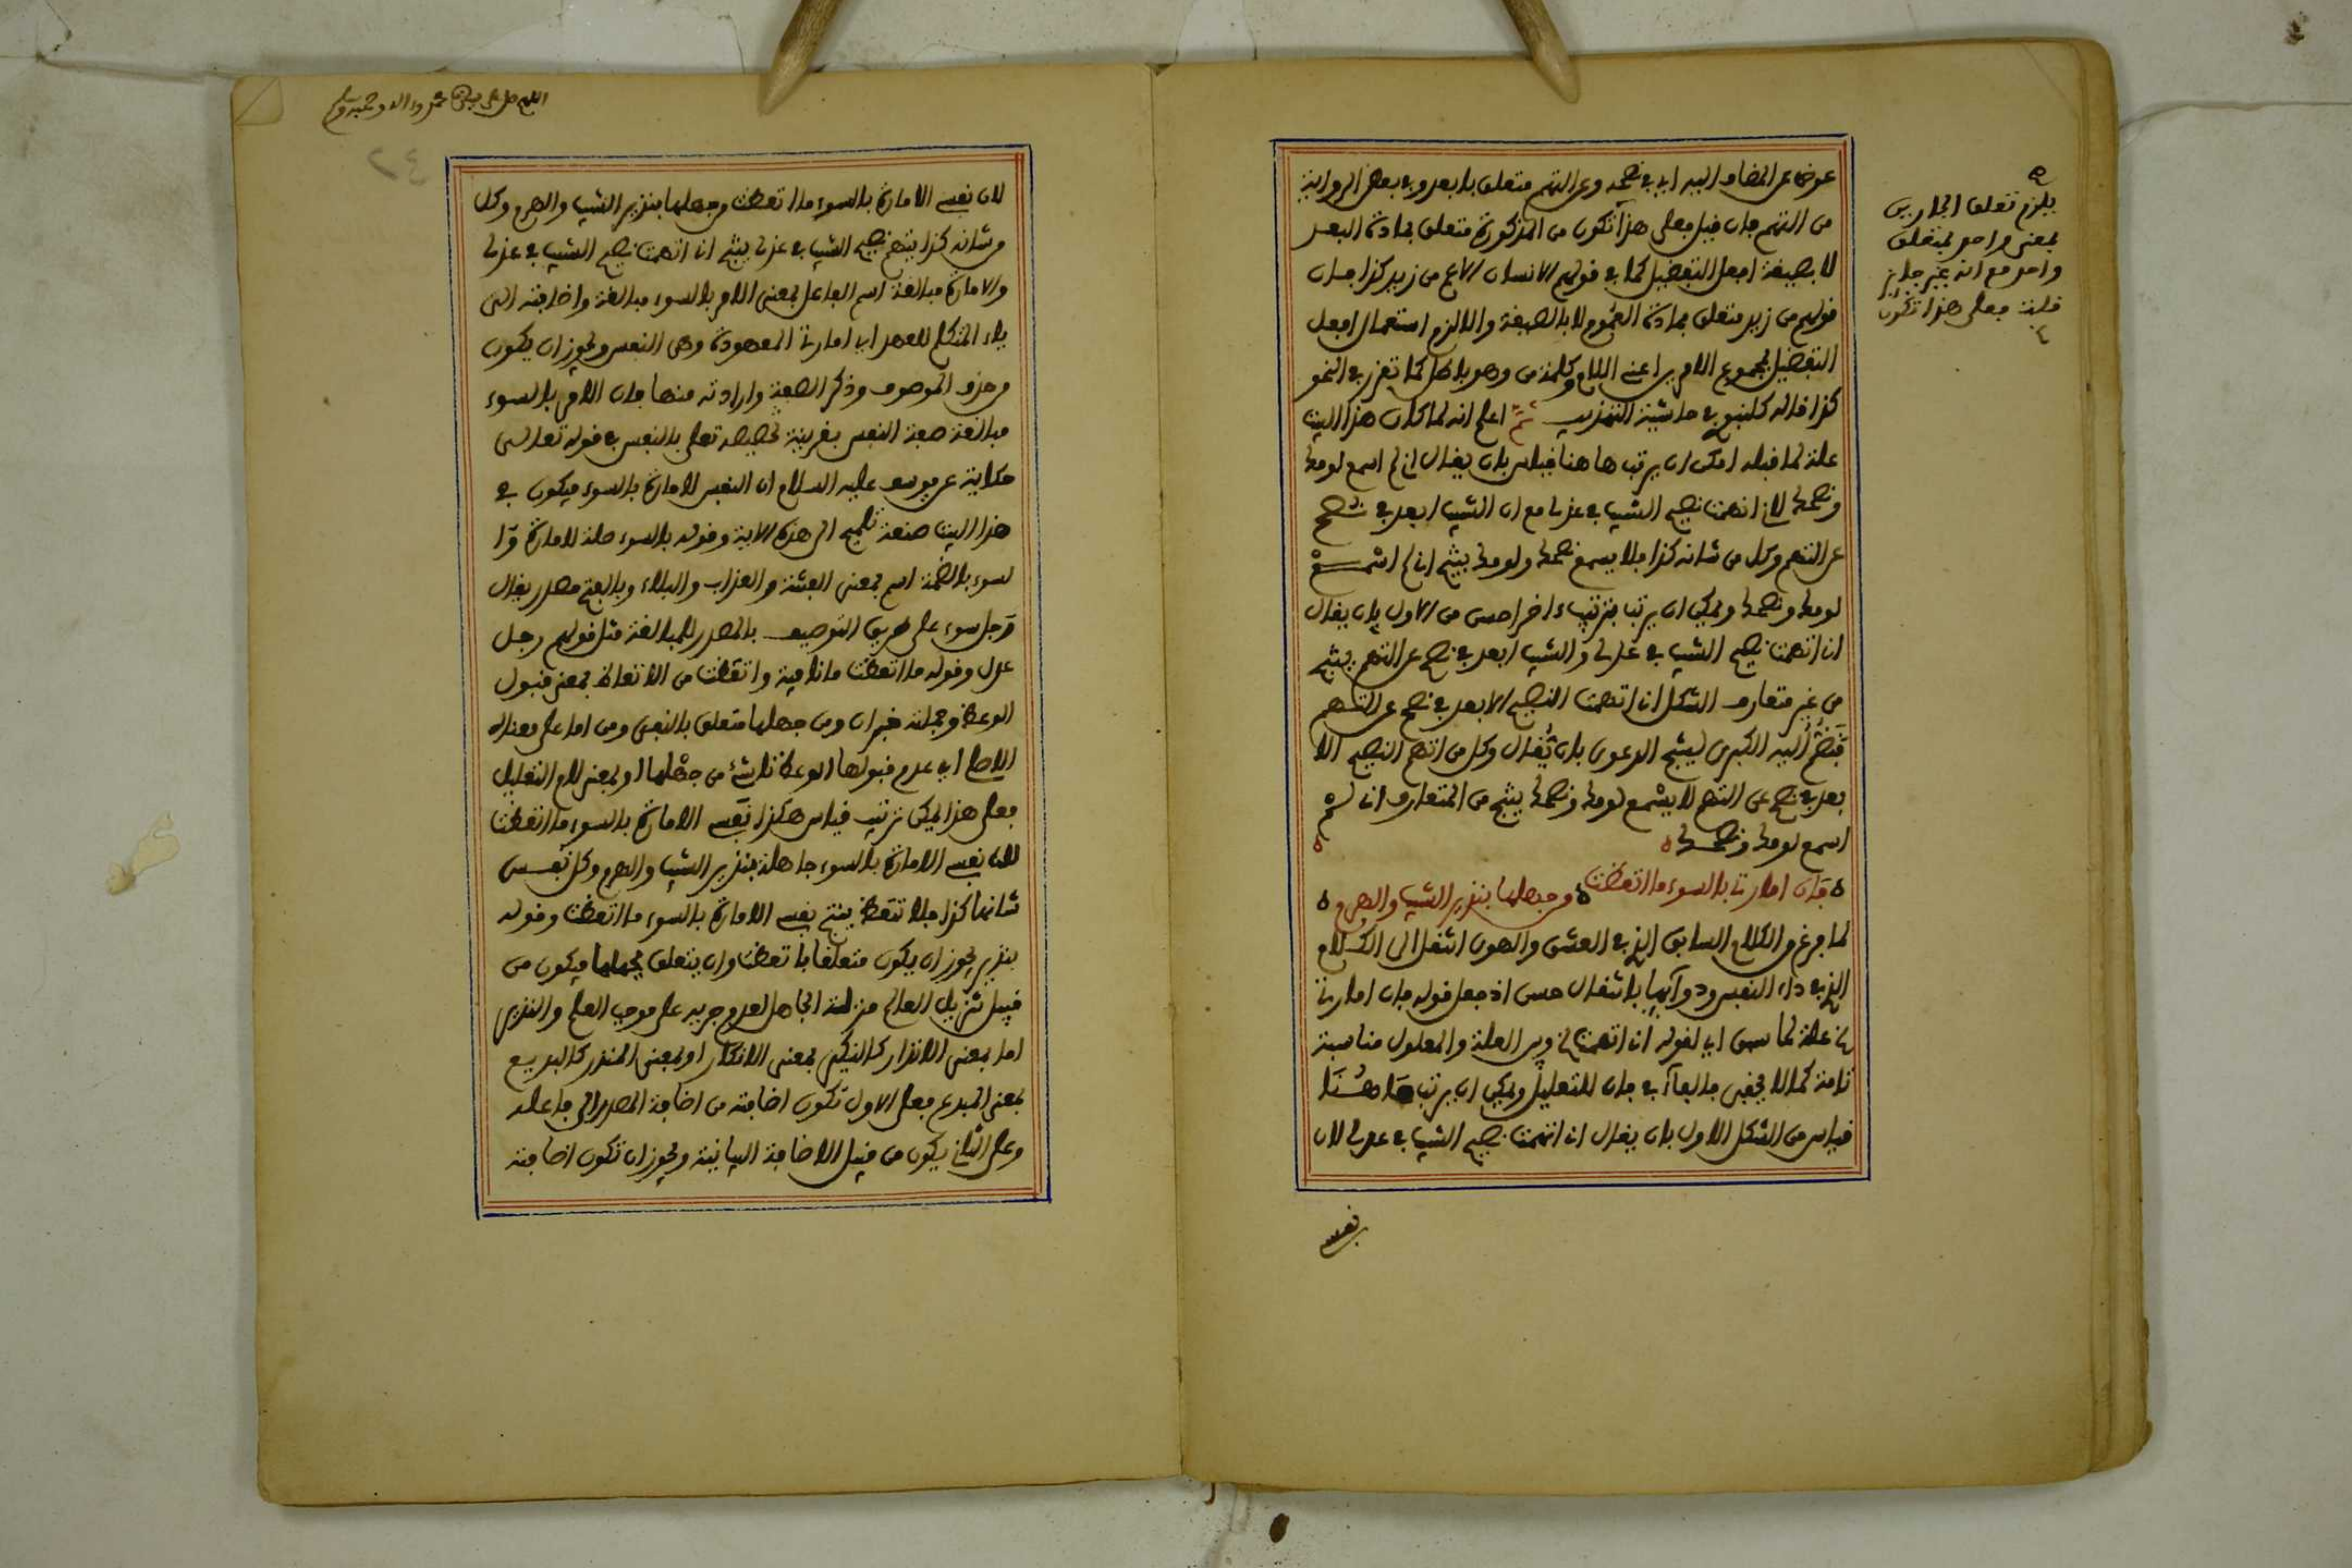 عوضا عن المضاف اليه اي في نصحه وعن التهم متعلق بابعد وفي بعض الرواية
من التهم فان قيل فعلى هذا تكون من المذكورة متعلق بمادة البعد
لا بصيغة افعل التفضيل كما في قولهم الانسان الاعم من زيد كذا فان
قولهم من زيد متعلق بمادة العموم لا بالصيغة والا لزم استعمال افعل
التفضيل بمجموع الامرين اعني اللام وكلمة من وهو باطل كما تقرر في النحو
كذا قاله كلنبوي في حاشية التهذيب ثم اعلم انه لما كان هذا البيت
علة لما قبله امكن ان يرتب هاهنا قياس بان يقال اني لم اسمع لومك
ونصحك لاني اتهمت نصيح الشيب في عذلي مع ان الشيب ابعد في نصح
عن التهم وكل من شانه كذا فلا يسمع نصحك ولومك ينتج اني لم اسمع
لومك ونصحك ويمكن ان يرتب بترتيب اخر احسن من الاول بان يقال
اني اتهمت نصيح الشيب في عذلي والشيب ابعد في نصح عن التهم ينتج
من غير متعارف الشكل اني اتهمت النصيح الابعد في نصح عن التهم
فتضم اليه الكبرى لينتج الدعوى بان يقال وكل من اتهم النصيح الا
بعد في نصح عن التهم لا يسمع لومك ونصحك ينتج من المتعارف اني لم
اسمع لومك ونصحك
فان امارتي بالسوء ما اتعظت من جهلها بنذير الشيب والهرم
لما فرغ من الكلام السابق الذي في العشق والهوى انتقل الى الكلام
الذي في داء النفس ودوائها بانتقال حسن اذ جعل قوله فان امارتي
علة لما سبق اي لقوله اني اتهمت وبين العلة والمعلول مناسبة
تامة كما لا يخفى فالفاء في فان للتعليل ويمكن ان يرتب هاهنا
قياس من الشكل الاول بان يقال اني اتهمت نصيح الشيب في عذلي لان
نفسي
يلزم تعلق الجارين
بمعنى واحد بمتعلق
واحد مع انه غير جايز
قلت فعلى هذا تكون
اللهم صل على سيدنا محمد واله وصحبه وسلم
٢٤
لان نفسي الامارة بالسوء ما اتعظت من جهلها بنذير الشيب والهرم وكل
من شانه كذا يتهم نصيح الشيب في عذلي ينتج اني اتهمت نصيح الشيب في عذلي
والامارة مبالغة اسم الفاعل بمعنى الامر بالسوء مبالغة واضافته الى
ياء المتكلم للعهد اي امارتي المعهودة وهي النفس ويجوز ان يكون
من حذف الموصوف وذكر الصفة وارادته منها فان الامر بالسوء
مبالغة صفة النفس بقرينة تخصيصه تعلى بالنفس في قوله تعالى
حكاية عن يوسف عليه السلام ان النفس لامارة بالسوء فيكون في
هذا البيت صنعة تلميح الى هذه الاية وقوله بالسوء صلة للامارة وا
لسوء بالضمة اسم بمعنى الفتنة والعذاب والبلاء وبالفتح مصدر يقال
رجل سوء على طريق التوصيف بالمصدر للمبالغة مثل قولهم رجل
عدل وقوله ما اتعظت ما نافية واتعظت من الاتعاظ بمعنى قبول
الوعظ وجملته خبر ان ومن جهلها متعلق بالنفي ومن اما على معناه
الاصلي اي عدم قبولها الوعظ ناشئ من جهلها او بمعنى لام التعليل
فعلى هذا يمكن ترتيب قياس هكذا نفسي الامارة بالسوء ما اتعظت
لان نفسي الامارة بالسوء جاهلة بنذير الشيب والهرم وكل نفس
شانها كذا فلا تتعظ ينتج نفسي الامارة بالسوء ما اتعظت وقوله
بنذير يجوز ان يكون متعلقا باتعظت وان يتعلق بجهلها فيكون من
قبيل تنزيل العالم منزلة الجاهل لعدم جريه على موجب العلم والنذير
اما بمعنى الانذار كالنكير بمعنى الانكار او بمعنى المنذر كالبديع
بمعنى المبدع فعلى الاول تكون اضافته من اضافة المصدر الى فاعله
وعلى الثاني يكون من قبيل الاضافة البيانية ويجوز ان تكون اضافته